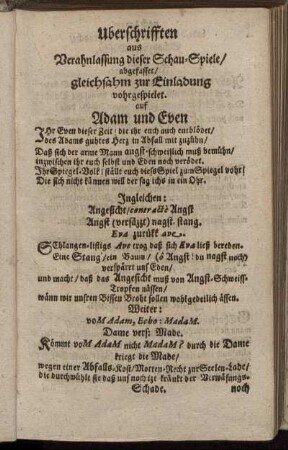 Uberschrifften
aus
Verahnlassung dieser Schau-Spiele/
abgefasset/
gleichsahm zur Einladung
vohrgespielet.
auf
Adam und Even
IHr Even dieser Zeit/ die ihr euch auch entblödet/
des Adams guhtes Hertz in Abfall mit zuzühn/
Daß sich der arme Mann angst-schweißlich muß bemühn/
inzwischen ihr euch selbst und Eden noch verödet.
Ihr Spiegel-Volk! stället euch dieses Spiel zum Spiegel vohr/
Die sich nicht kännen will der sag ichs in ein Ohr.
Ingleichen:
Angesicht/ contractè Angst
Angst (versäzzt) nagst. stang.
Eva zurükk ave.
SChlangen-listigs Ave trog daß sich Eva ließ bereden.
Eine Stang/ ein Baum/ (ô Angst! du nagst noch)
verspärrt uns Eden/
und macht/ daß das Angesicht muß von Angst-Schweiß-
Tropfen nässen/
wann wir unsren Bissen Broht sollen wohlgedeilich ässen.
Weiter:
voM Adam, Echo: MadaM.
Dame vers. Made.
Kömmt voM AdaM nicht MadaM? durch die Dame
kriegt die Made/
wegen einer Abfalls-Kost/ Motten-Recht zur Seelen-Lade/
die durchwühlt sie daß uns noch izt kränkt der Verwäsungs-
Schade. noch